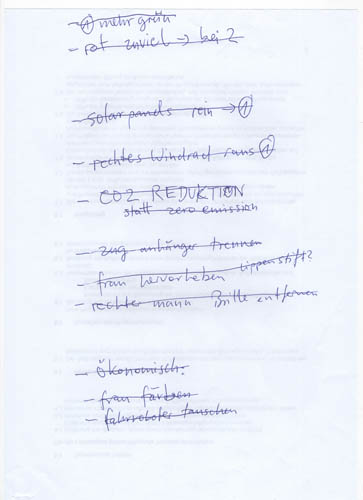 - ① mehr grün
- rot zuviel → bei 2
- solarpanels rein → ①
- rechtes Windrad raus ①
- CO2 REDUKTION
statt zero emission
- zug anhänger trennen
- frau hervorheben Lippenstift?
- rechter mann Brille entfernen
- ökonomisch:
- frau färben
- fahrroboter tauschen